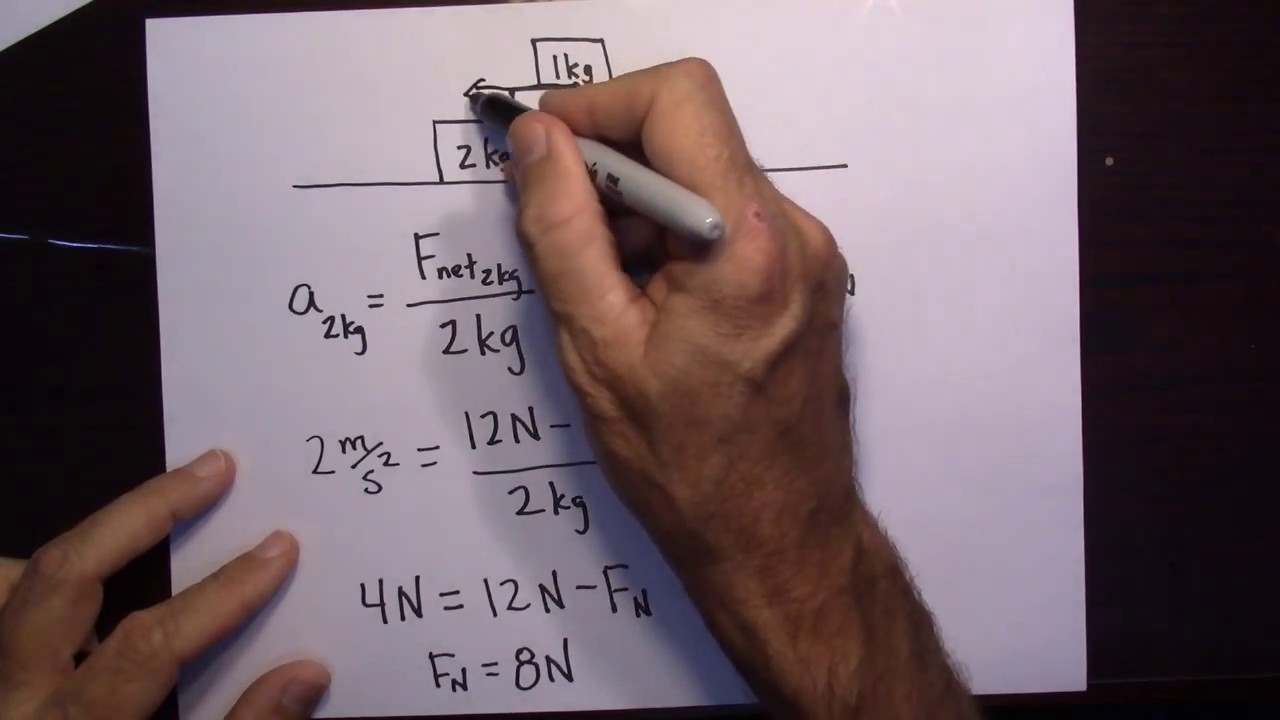 1kg
2kg
a2kg = Fnet2kg / 2kg
2 m/s² = 12N - / 2kg
4N = 12N - FN
FN = 8N